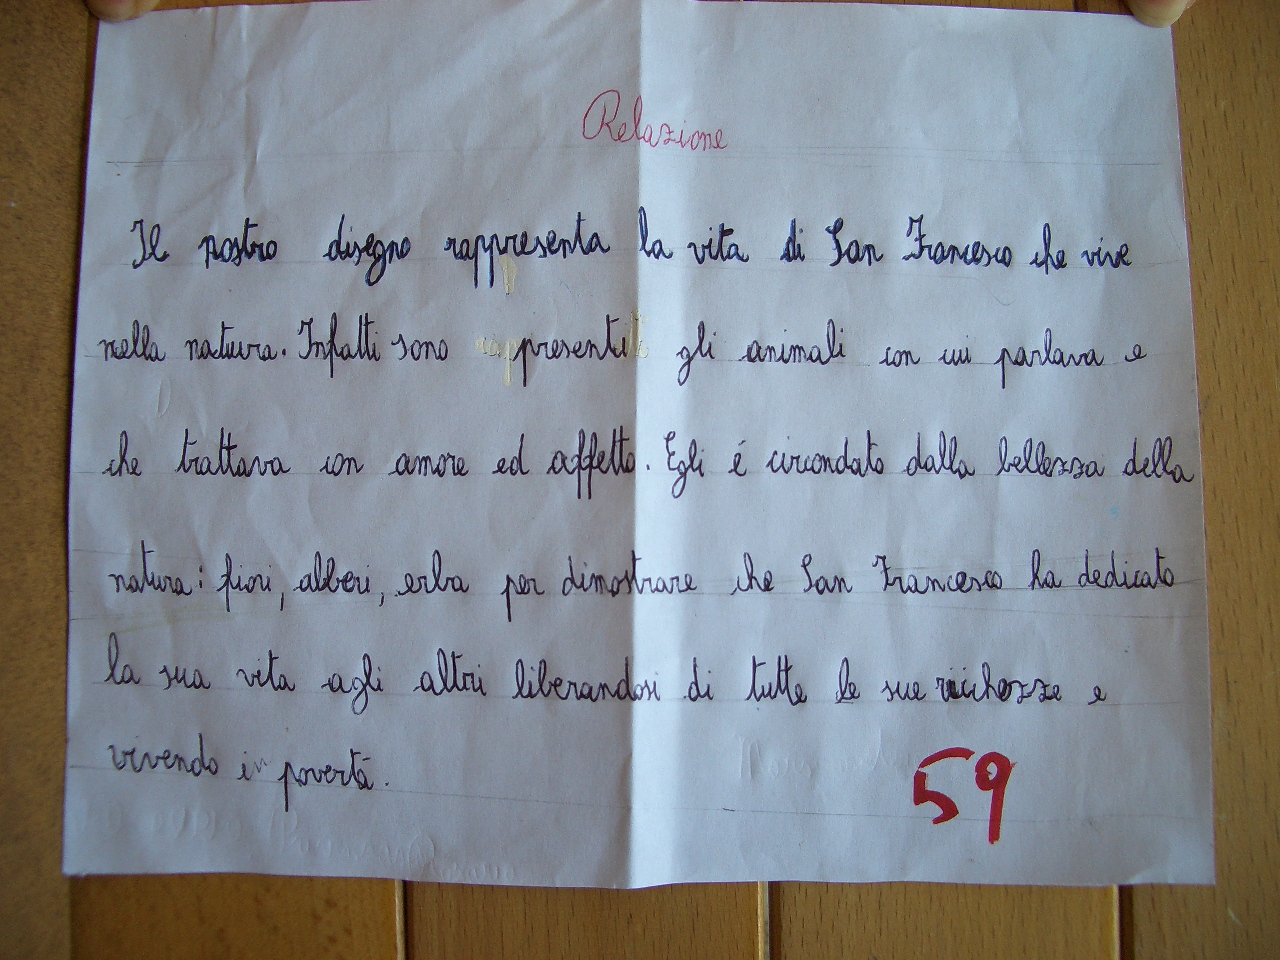 Relazione
Il nostro disegno rappresenta la vita di San Francesco che vive
nella natura. Infatti sono presenti gli animali con cui parlava e
che trattava con amore ed affetto. Egli é circondato dalla bellezza della
natura: fiori, alberi, erba per dimostrare che San Francesco ha dedicato
la sua vita agli altri liberandosi di tutte le sue ricchezze e
vivendo in povertà.
59